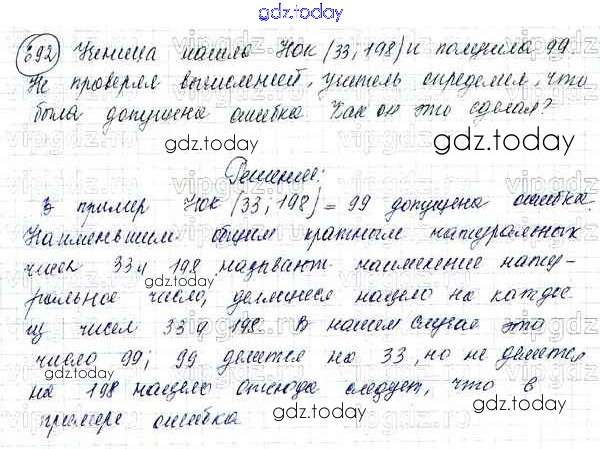 gdz.today
692) Ученица нашла НОК (33, 198) и получила 99
Не проверяя вычислений, учитель определил, что
была допущена ошибка. Как он это сделал?
gdz.today
gdz.today
Решение:
В пример НОК (33, 198) = 99 допущена ошибка.
Наименьшим общим кратным натуральных
чисел 33 и 198 называют наименьшее нату-
ральное число, делящиеся нацело на кажды
gdz.today
из чисел 33 и 198. В нашем случае это
число 99; 99 делится на 33, но не делется
на 198 нацело отсюда следует, что в
gdz.today
примере ошибка
gdz.today